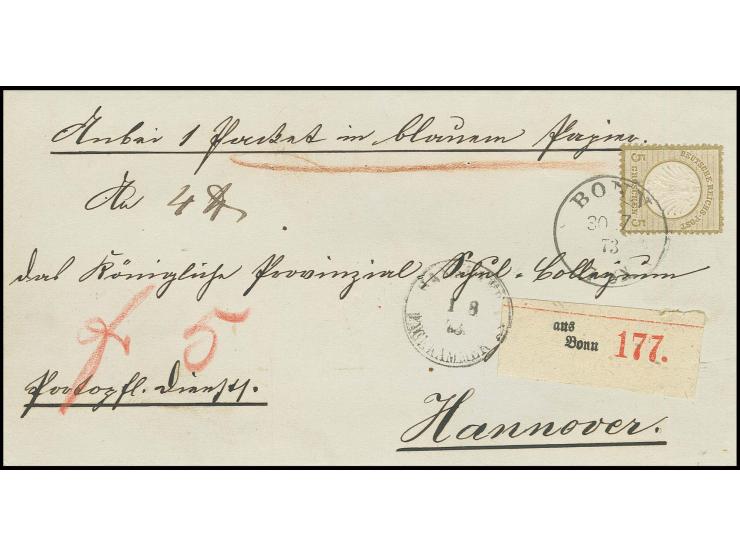 Anbei 1 Packet in blauem Papier.
DEUTSCHE REICHS-POST
5 GROSCHEN 5
An 4 ℔
BONN
30 7
73
das Königliche Provinzial-Schul-Collegium
1 8
PACKKAMMER
5
aus
Bonn 177.
Portopfl. Dienstf.
Hannover.